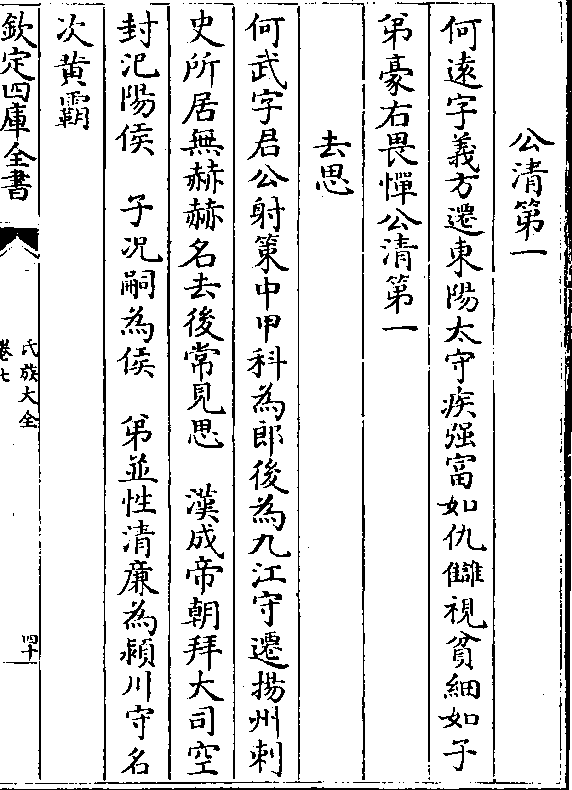 公清第一
何逺字義方遷東陽太守疾强富如仇讎視貧細如子
弟豪右畏憚公清第一
去思
何武字君公射策中甲科為郎後為九江守遷揚州刺
史所居無赫赫名去後常見思　漢成帝朝拜大司空
封氾陽侯　子况嗣為侯　弟並性清廉為潁川守名
次黄霸
欽定四庫全書
氏族大全
卷七
四十